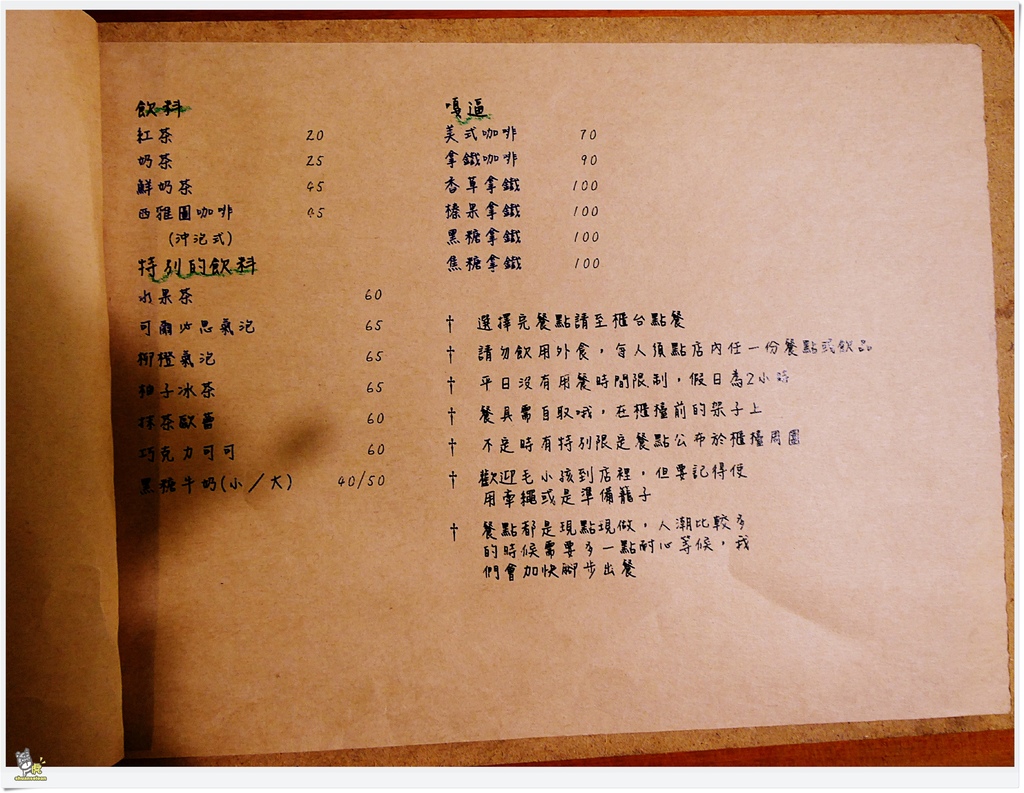 飲料
紅茶 20
奶茶 25
鮮奶茶 45
西雅圖咖啡 45
(沖泡式)
特別的飲料
水果茶 60
可爾必思氣泡 65
柳橙氣泡 65
柚子冰茶 65
抹茶歐蕾 60
巧克力可可 60
黑糖牛奶(小/大) 40/50
嘎逼
美式咖啡 70
拿鐵咖啡 90
香草拿鐵 100
榛果拿鐵 100
黑糖拿鐵 100
焦糖拿鐵 100
† 選擇完餐點請至櫃台點餐
† 請勿飲用外食,每人須點店內任一份餐點或飲品
† 平日沒有用餐時間限制,假日為2小時
† 餐具需自取哦,在櫃檯前的架子上
† 不定時有特別限定餐點公布於櫃檯周圍
† 歡迎毛小孩到店裡,但要記得使
用牽繩或是準備籠子
† 餐點都是現點現做,人潮比較多
的時候需要多一點耐心等候,我
們會加快腳步出餐